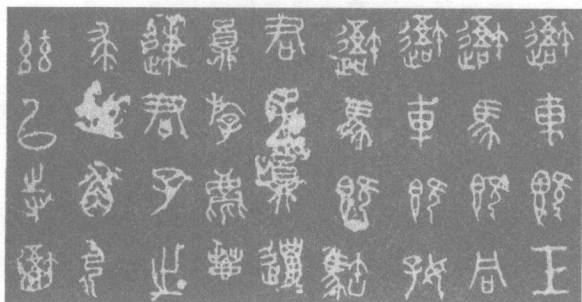 避車既工
避馬既同
避車既好
避馬既
君員邋
員斿麀鹿
速君子之
求角弓
茲以寺避